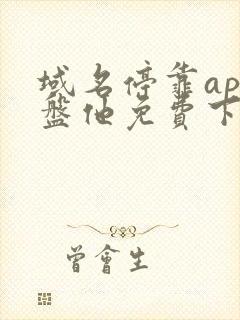 域名停靠ap
盤他免費下
曾會生